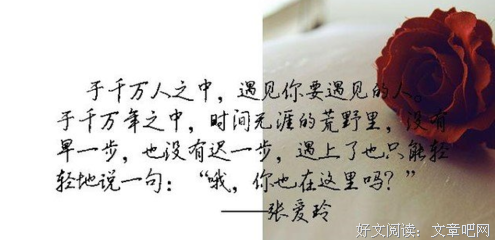 于千万人之中，遇见你要遇见的人。
于千万年之中，时间无涯的荒野里，没有
早一步，也没有迟一步，遇上了也只能轻
轻地说一句：“哦，你也在这里吗？”
——张爱玲
好文阅读：文章吧网